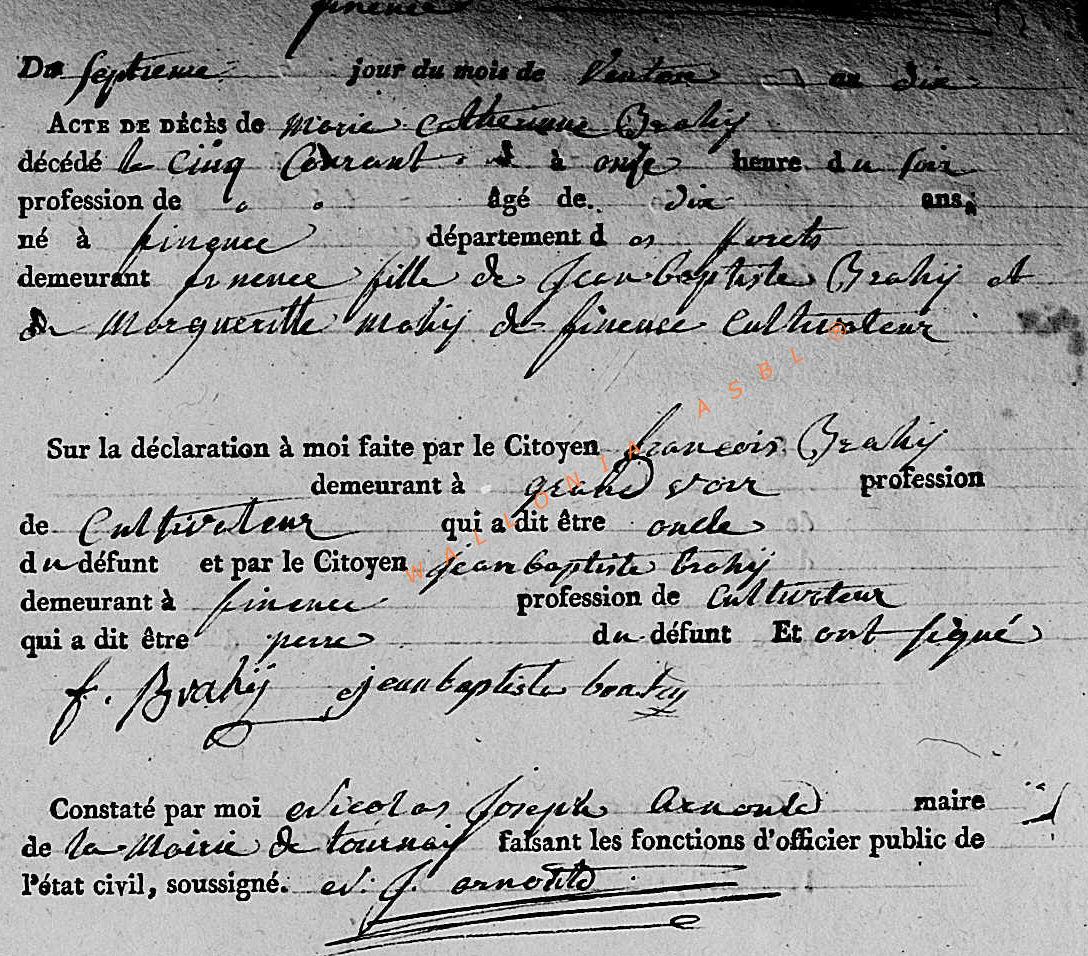 finence
Du Septieme jour du mois de Ventose an dix
ACTE DE DÉCÈS de Marie Catherinne Brahij
décédé le Cinq Courant à onse heure du soir
profession de âgé de. dix ans.
né à finence département d es forets
demeurant finence fille de Jean baptiste Brahij et
de Margueritte Mahij de fineuse Cultivateur
Sur la déclaration à moi faite par le Citoyen francois Brahij
demeurant à grand voir profession
de Cultivateur qui a dit être oncle
du défunt et par le Citoyen jean baptiste brahij
demeurant à finence profession de Cultivateur
qui a dit être perre du défunt Et ont signé
f. Brahij jean baptiste
Constaté par moi Nicolas Joseph Arnould maire
de la Mairie de tournay faisant les fonctions d'officier public de
l'état civil, soussigné. N. J. arnould
WALLONIA ASBL ®